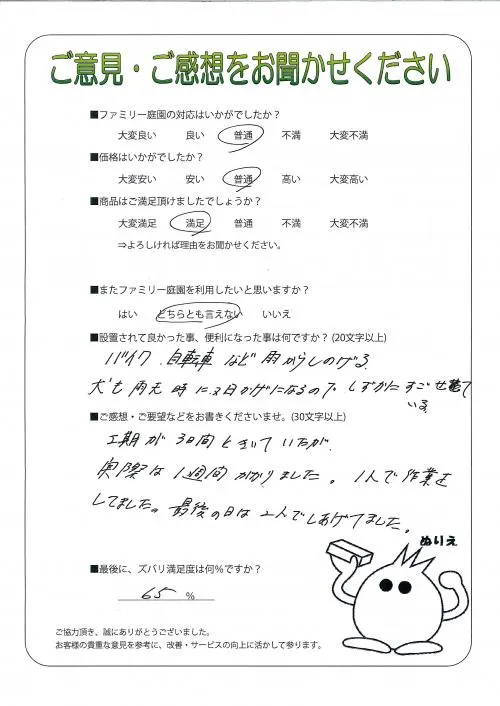 ご意見・ご感想をお聞かせください
■ファミリー庭園の対応はいかがでしたか？
大変良い 良い 普通 不満 大変不満
■価格はいかがでしたか？
大変安い 安い 普通 高い 大変高い
■商品はご満足頂けましたでしょうか？
大変満足 満足 普通 不満 大変不満
⇒よろしければ理由をお聞かせください。
■またファミリー庭園を利用したいと思いますか？
はい どちらとも言えない いいえ
■設置されて良かった事、便利になった事は何ですか？(20文字以上)
バイク、自転車など雨がしのげる
犬も雨天時に 日かげになるので、しずかにすごせ
いる
■ご感想・ご要望などをお書きくださいませ。(30文字以上)
工期が3日間ときいていたが、
実際は1週間かかりました。1人で作業を
してました。最後の日は二人でしあげてました。
ぬりえ
■最後に、ズバリ満足度は何％ですか？
65 ％
ご協力頂き、誠にありがとうございました。
お客様の貴重な意見を参考に、改善・サービスの向上に活かして参ります。